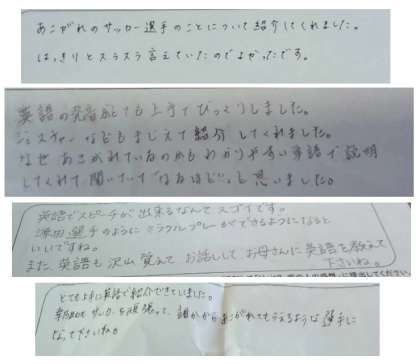 あこがれのサッカー選手のことについて紹介してくれました。
はっきりとスラスラ言えていたのでよかったです。
英語の発音がとても上手でびっくりしました。
ジェスチャーなどもまじえて紹介してくれました。
なぜあこがれているのかもわかりやすい英語で説明
してくれて、聞いていて「なるほど!」と思いました。
英語でスピーチが出来るなんてスゴイです。
選手のようにミラクルプレーができるようになると
いいですね。
また、英語も沢山覚えてお話しして お母さんに英語を教えて
下さいね。
とても上手に英語で紹介できていました。
サッカーを頑張って、誰かからあこがれてもらえるような選手に
なって下さいね。